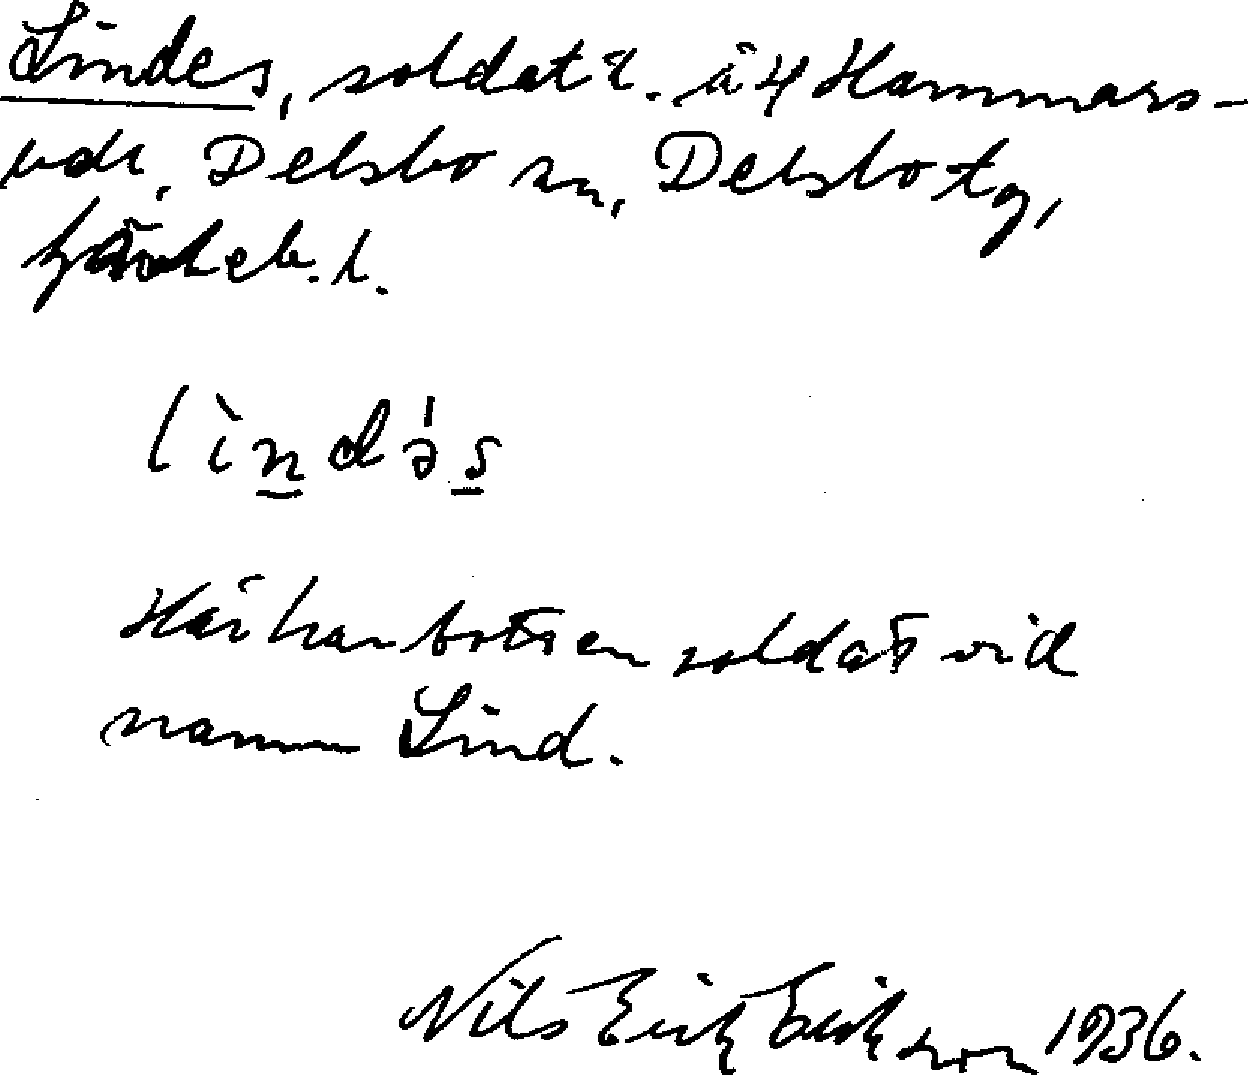 Lindes, soldatt. å 4 Hammars-
vdr, Delsbo sn, Delsbo tg,
Gävleb. l.
lìndə́s
Här har bott en soldat vid
namn Lind.
Nils Erik Erikson 1936.